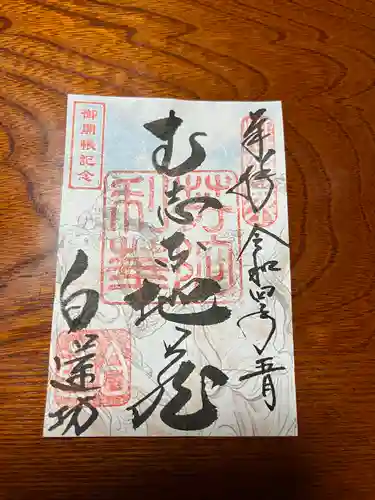 奉拝
令和四年五月
むじな地蔵
白蓮坊
御開帳記念